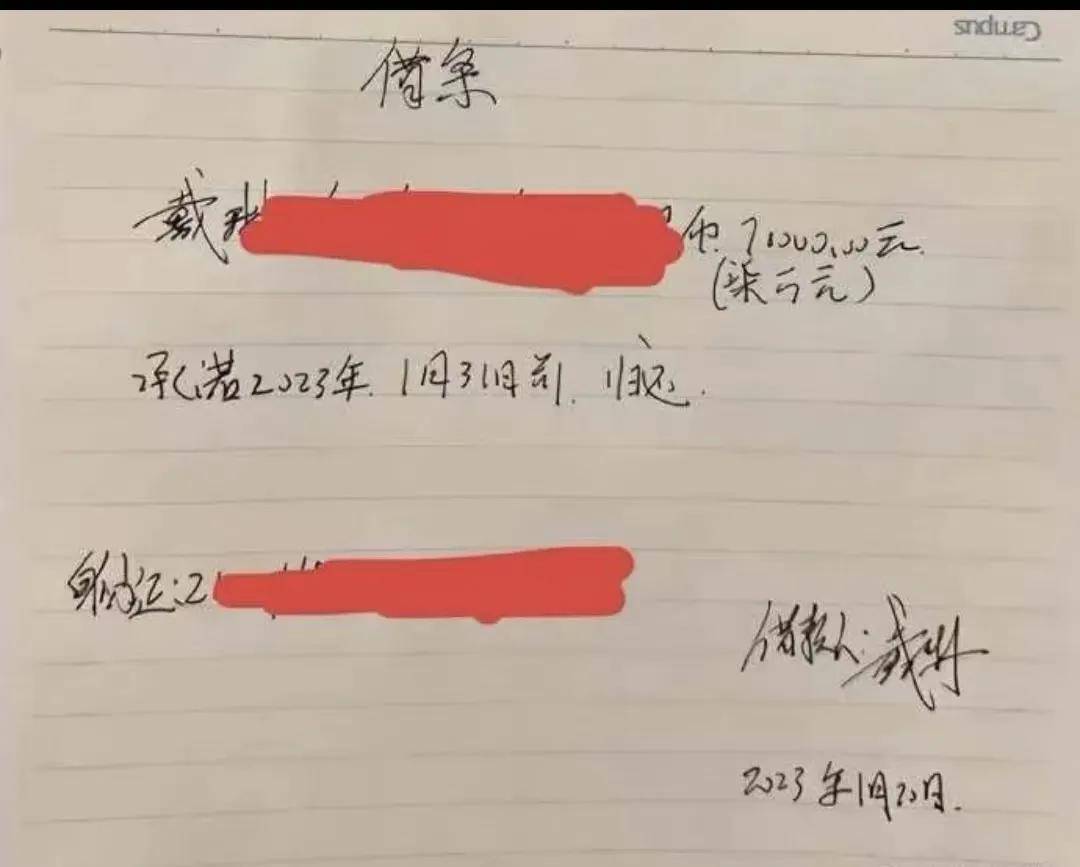 Campus
借条
戴 币 71000.00元.
(柒万元)
承诺2023年.1月31日前.归还.
身份证:2
借款人:戴
2023年1月20日.